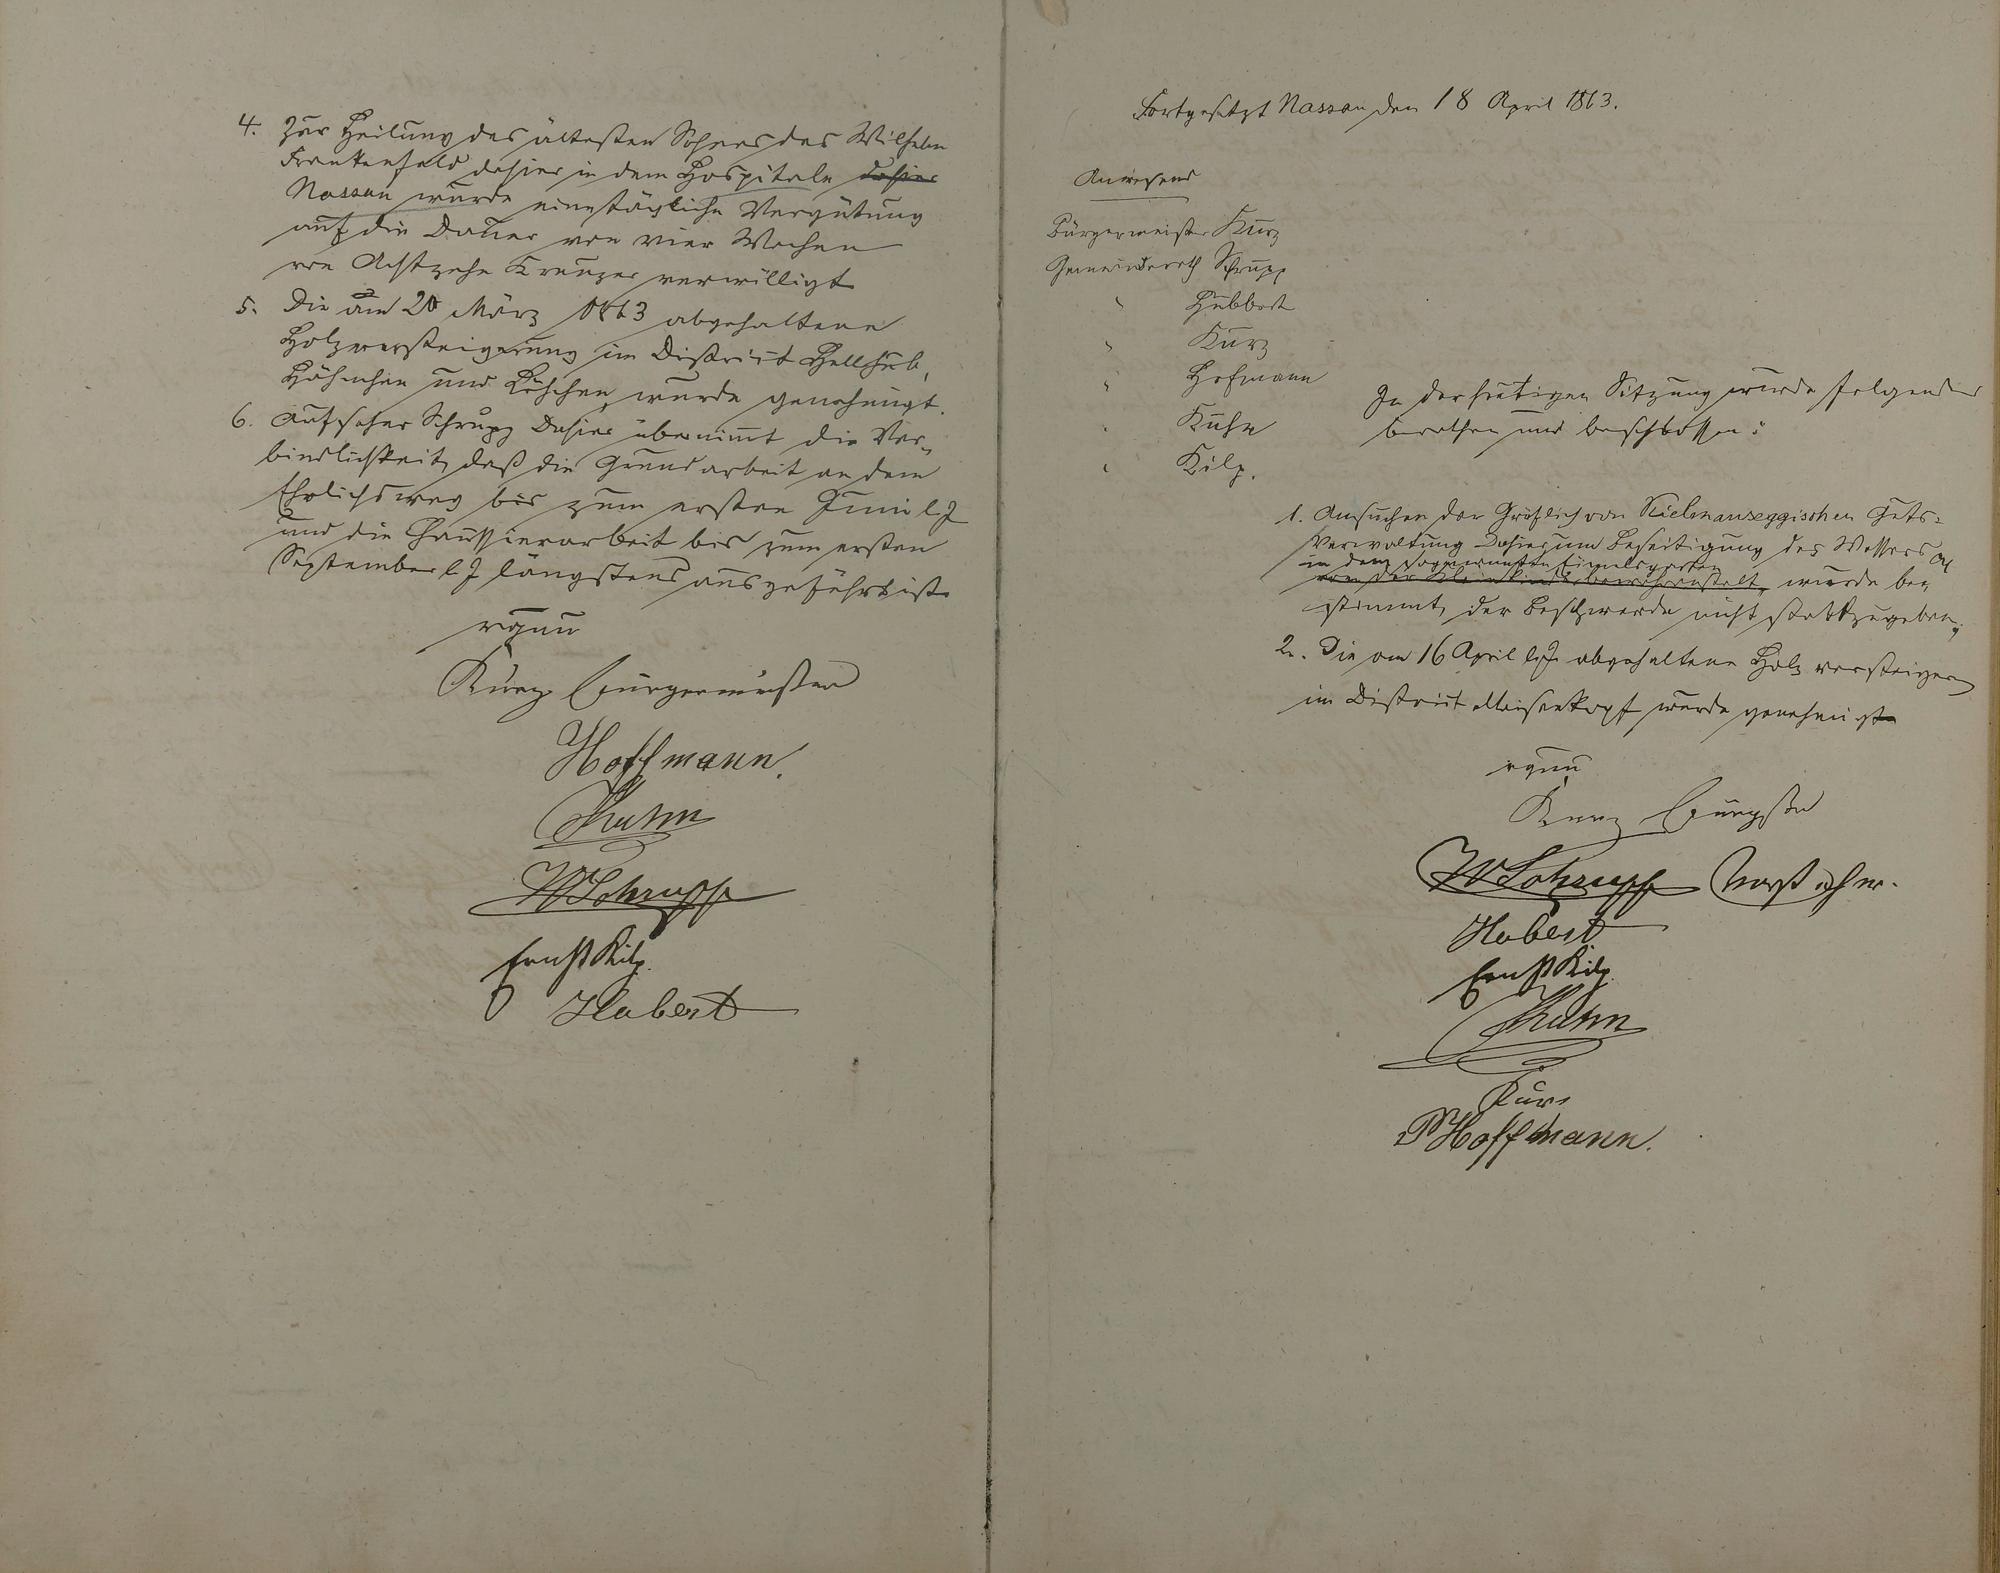 4. Zur Heilung des ältesten Sohnes des Wilhelm
Frankenfeld dahier in dem Hospitale dahier
Nassau wurde eine tägliche Vergütung
auf die Dauer von vier Wochen
von Achtzehn Kreuzer verwilligt
5. Die am 20 März 1863 abgehaltene
Holzversteigerung im District Hellhub,
Höhnchen und wurde genehmigt.
6. Aufseher Schrupp dahier übernimmt die Ver-
bindlichkeit, daß die Grundarbeit an dem
Ehrlichsweg bis zum ersten Juni l J
und die Chaussierarbeit bis zum ersten
September l J längstens ausgeführt ist
Kurz Bürgermeister
Hoffmann.
Kuhn
W Schrupp
Ernst Kilp
Habert
Fortgesetzt Nassau den 18 April 1863.
Anwesend
Bürgermeister Kurz
Gemeinderath Schrupp
" Hubbert
" Kurz
" Hofmann
" Kuhn
" Kilp.
In der heutigen Sitzung wurde folgendes
berathen und beschlossen:
1. Ansuchen der Gräflich von Kielmanseggischen Guts-
verwaltung dahier um Beseitigung des Wassers
in dem sogenannten
von der Kleinkinderbewahranstalt, wurde be-
stimmt, der Beschwerde nicht stattzugeben,
2. Die am 16 April l J abgehaltene Holzversteigerung
im District Meisenkopf wurde genehmigt
Kurz Bürgstr
W Schrupp Vorsteher.
Habert
Ernst Kilp
Kuhn
Kurz
P Hoffmann.